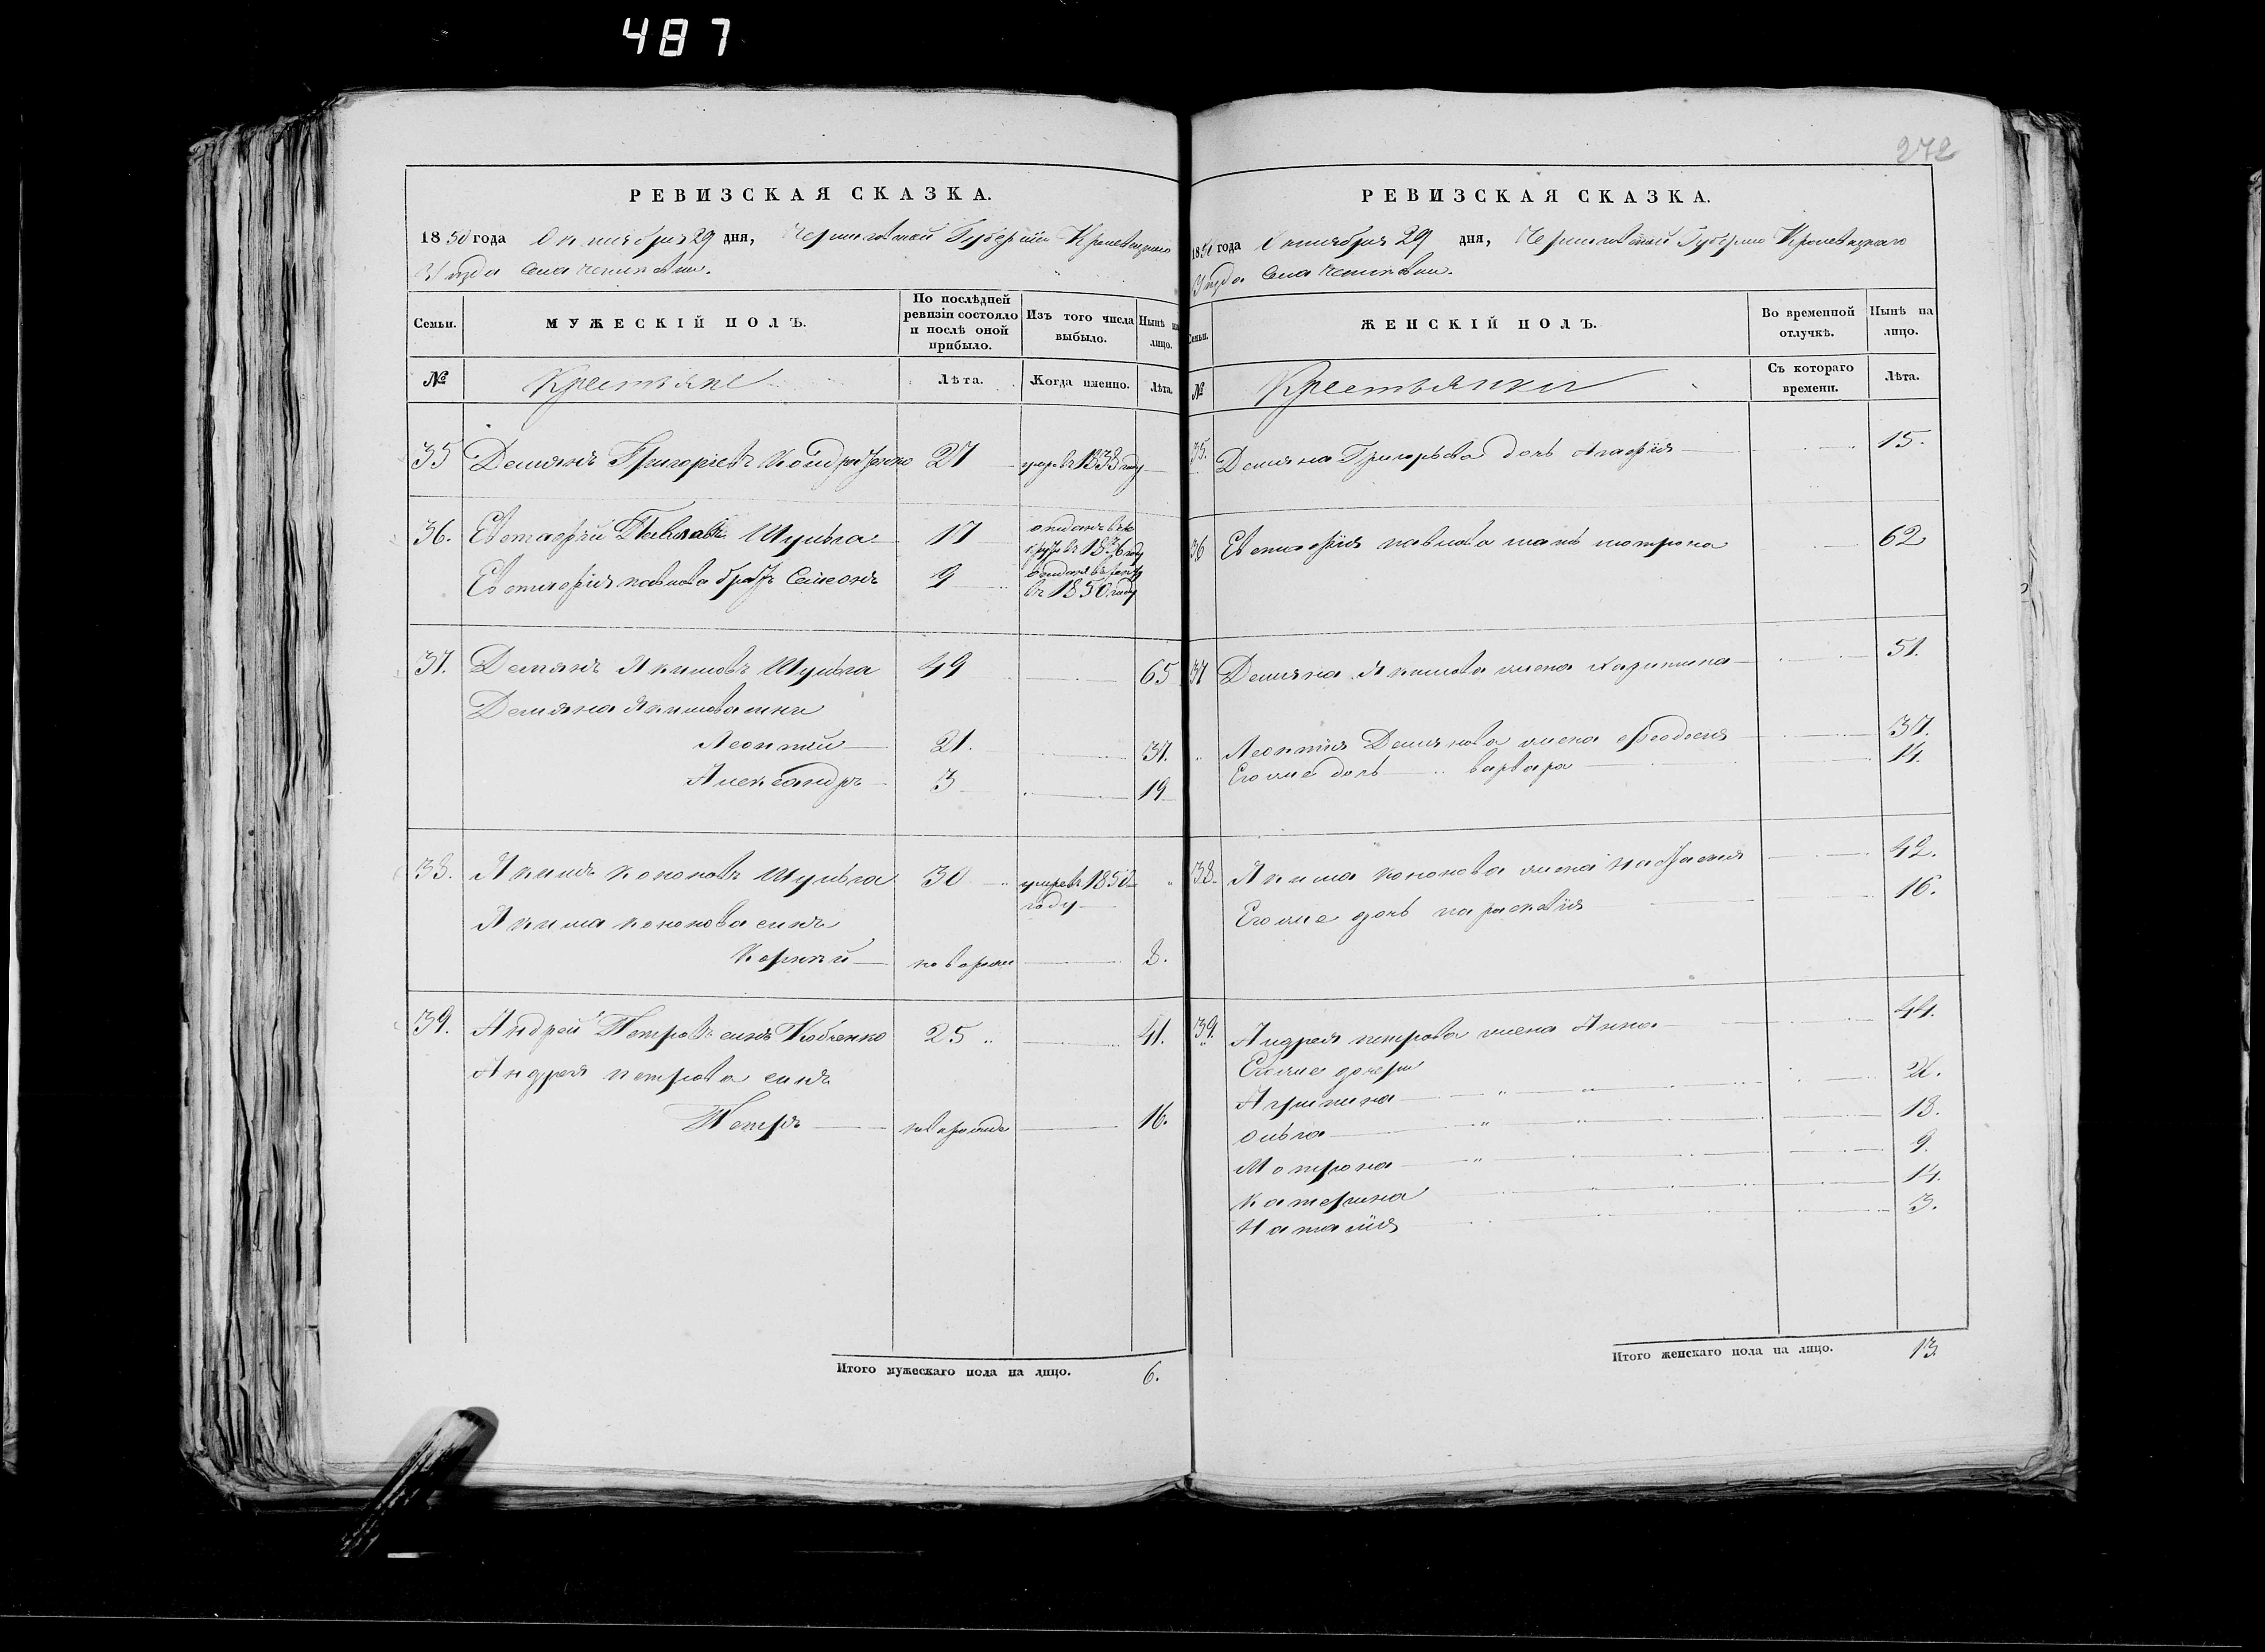 487
272
РЕВИЗСКАЯ СКАЗКА.
1850 года Октября 29 дня, Черниговской Губернии Кролевецкого
Уезда Села
Семьи.
МУЖЕСКІЙ ПОЛЪ.
По послѣдней ревизіи состояло и послѣ оной прибыло.
Изъ того числа выбыло.
Нынѣ на лицо.
№
Крестьяне
Лѣта.
Когда именно.
Лѣта.
35 Демянъ Григоріевъ 27 умре въ 1838 году
36. Евстафій Павловъ Шульга 17 отданъ въ рекруты въ 1836 году
Евстафія павлова братъ Семіонъ 9 отданъ в рекруты въ 1850 году
37. Демянъ Якимовъ Шульга 49 65
Демяна Якимова сыны
Леонтий 21. 37.
Александръ 3 19
38. Якимъ кононовъ Шульга 30 умре въ 1850 году
Якима кононова сынъ
Корній новорож 8.
39. Андрей Петровъ синъ Кобченко 25 41.
Андрея петрова синъ
Петръ новорожд 16.
Итого мужескаго пола на лицо. 6.
РЕВИЗСКАЯ СКАЗКА.
1850 года Октября 29 дня, Черниговской Губернии Кролевецкаго
Уезда Села
Семьи.
ЖЕНСКІЙ ПОЛЪ.
Во временной отлучкѣ.
Нынѣ на лицо.
№
Крестьянки
Съ котораго времени.
Лѣта.
35. Демяна Григорьева дочь Агафія 15.
36 Евстафія павлова мать мотрона 62
37 Демяна Якимова жена 51.
Леонтія Демянова жена Феодосия 37.
Его же дочь варвара 14.
38. Якима кононова жена Настасия 42.
Его же дочь параскевія 16.
39. Андрея петрова жена Анна 44.
Его же дочери
Агрипина
олѣга 18.
Мотрона 9.
Катерина 14.
Наталія 3.
Итого женскаго пола на лицо. 13